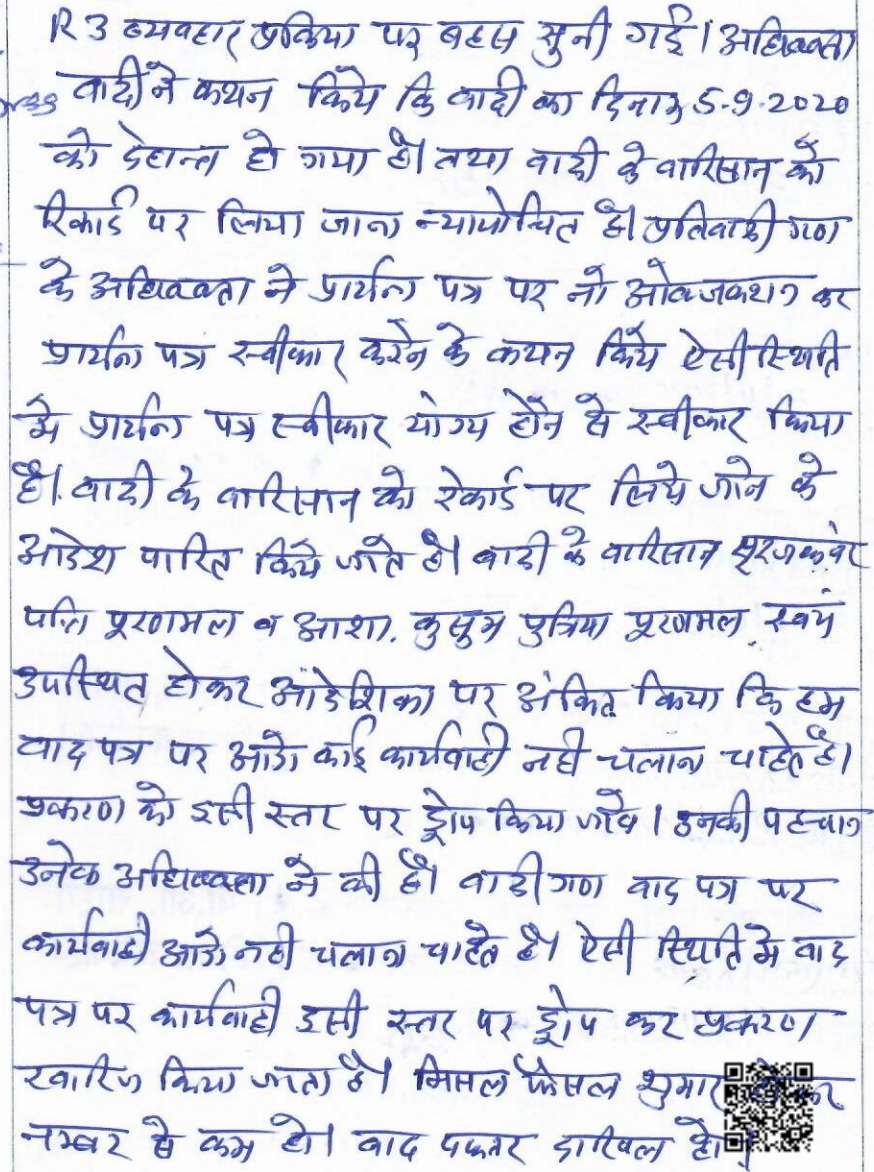 R 3 व्यवहार प्रक्रिया पर बहस सुनी गई। अधिवक्ता
वादी ने कथन किये कि वादी का दिनांक 5-9-2020
को देहान्त हो गया है। तथा वादी के वारिसान को
रिकार्ड पर लिया जाना न्यायोचित है। प्रतिवादी गण
के अधिवक्ता ने प्रार्थना पत्र पर नो ओब्जेक्शन कर
प्रार्थना पत्र स्वीकार करने के कथन किये ऐसी स्थिति
मे प्रार्थना पत्र स्वीकार योग्य होने से स्वीकार किया
है। वादी के वारिसान को रेकार्ड पर लिये जाने के
आदेश पारित किये जाते है। वादी के वारिसान सूरजकंवर
पत्नि पूरणमल व आशा, कुसुम पुत्रिया पूरणमल स्वयं
उपस्थित होकर आदेशिका पर अंकित किया कि हम
वाद पत्र पर आगे कोई कार्यवाही नही चलाना चाहते है।
प्रकरण को इसी स्तर पर ड्रोप किया जावे। उनकी पहचान
उनके अधिवक्ता ने की है। वादीगण वाद पत्र पर
कार्यवाही आगे नही चलाना चाहते है। ऐसी स्थिति मे वाद
पत्र पर कार्यवाही इसी स्तर पर ड्रोप कर प्रकरण
खारिज किया जाता है। मिसल फैसल शुमार होकर
नम्बर से कम हो। वाद दफ्तर दाखिल हो।